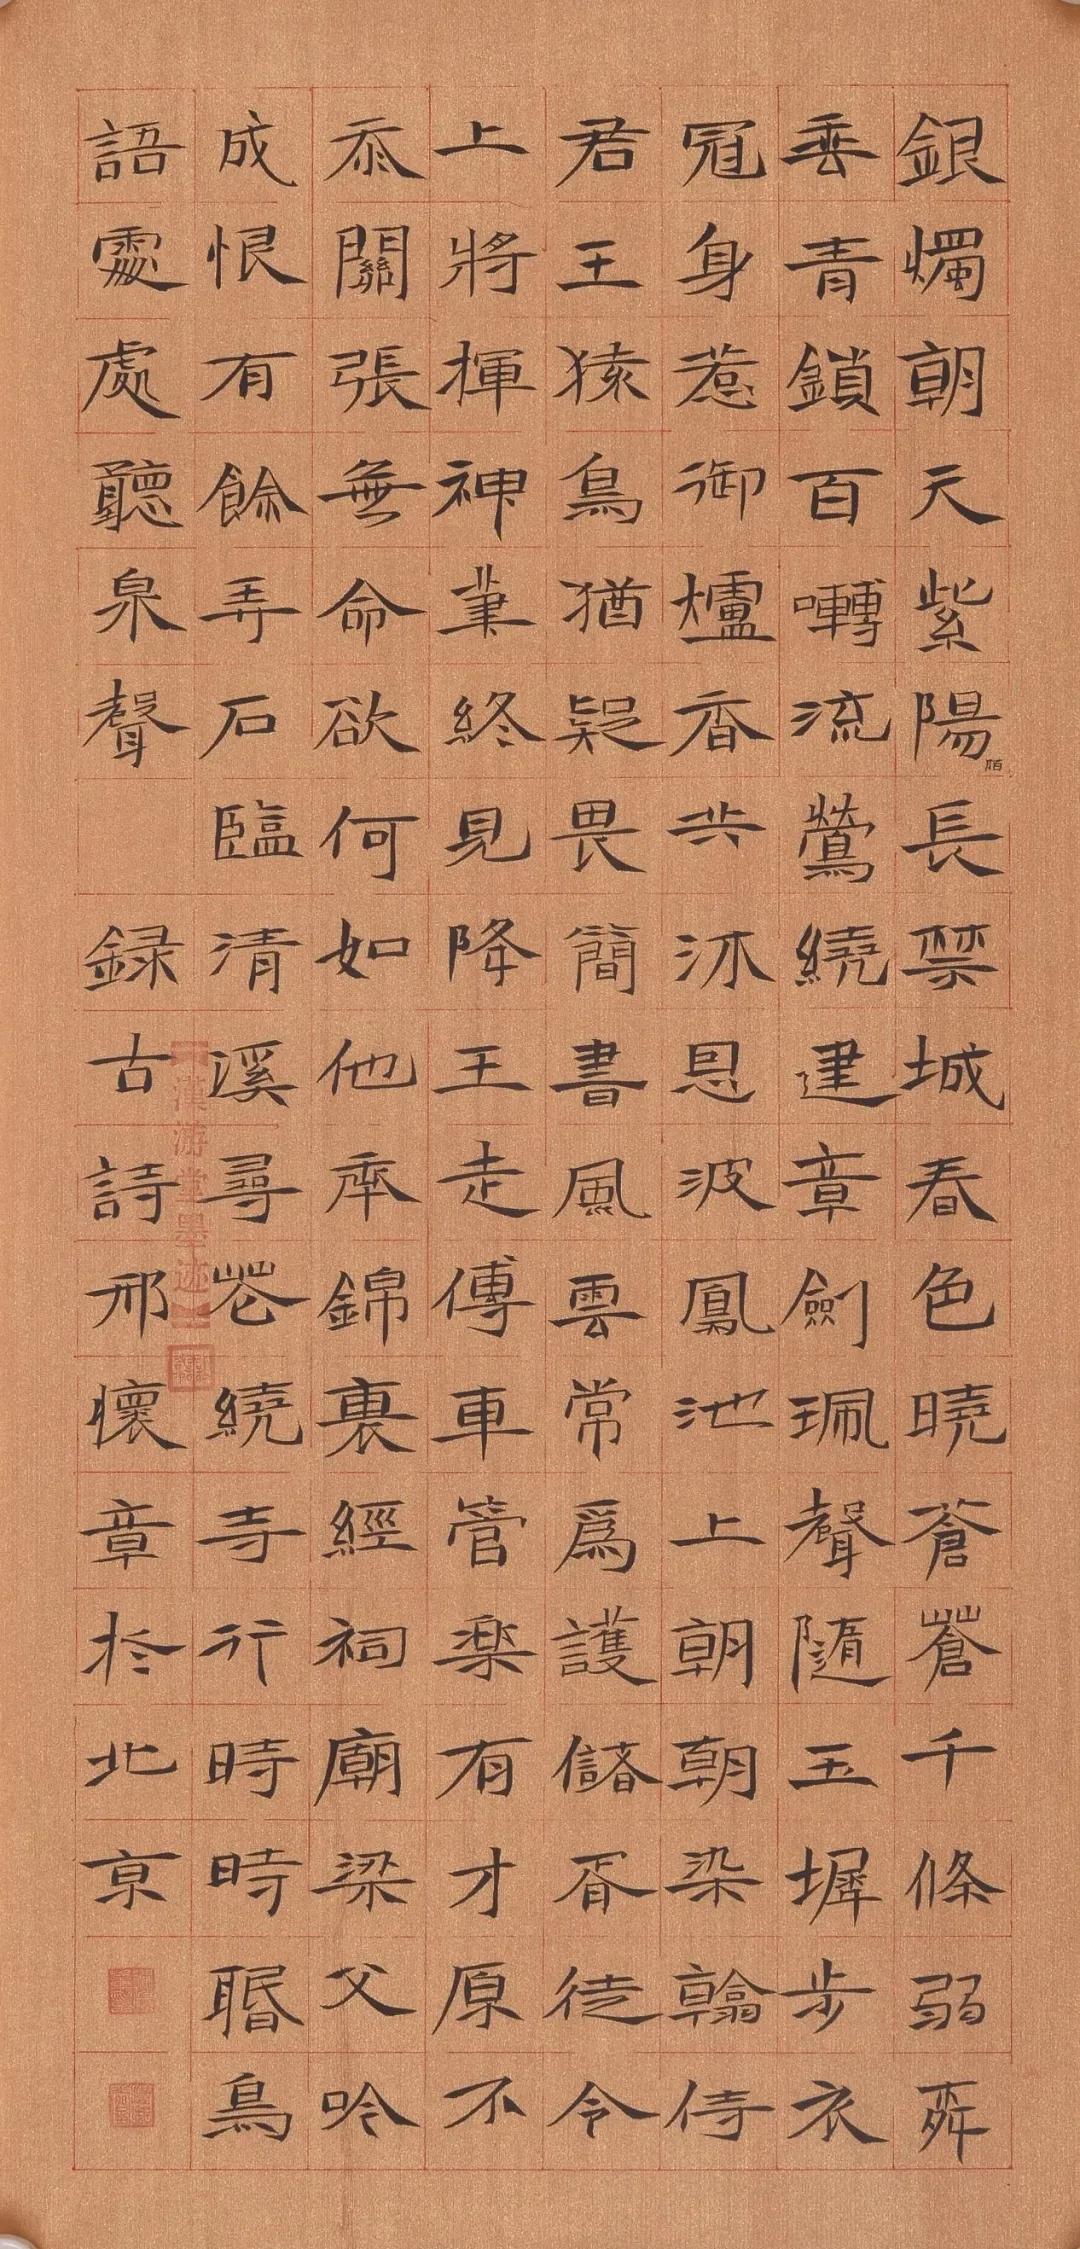 銀燭朝天紫陽長禁城春色曉蒼蒼千條弱舜
陌
垂青鎖百囀流鶯繞建章劍珮聲隨玉墀步衣
冠身惹御爐香共沐恩波鳳池上朝朝染翰侍
君王猿鳥猶疑畏簡書風雲常爲護儲胥徒令
上將揮神筆終見降王走傳車管樂有才原不
忝關張無命欲何如他年錦裏經祠廟梁父吟
成恨有餘弄石臨清溪尋花繞寺行時時聞鳥
語處處聽泉聲 録古詩邢懷章於北京
【漢游堂墨迹】